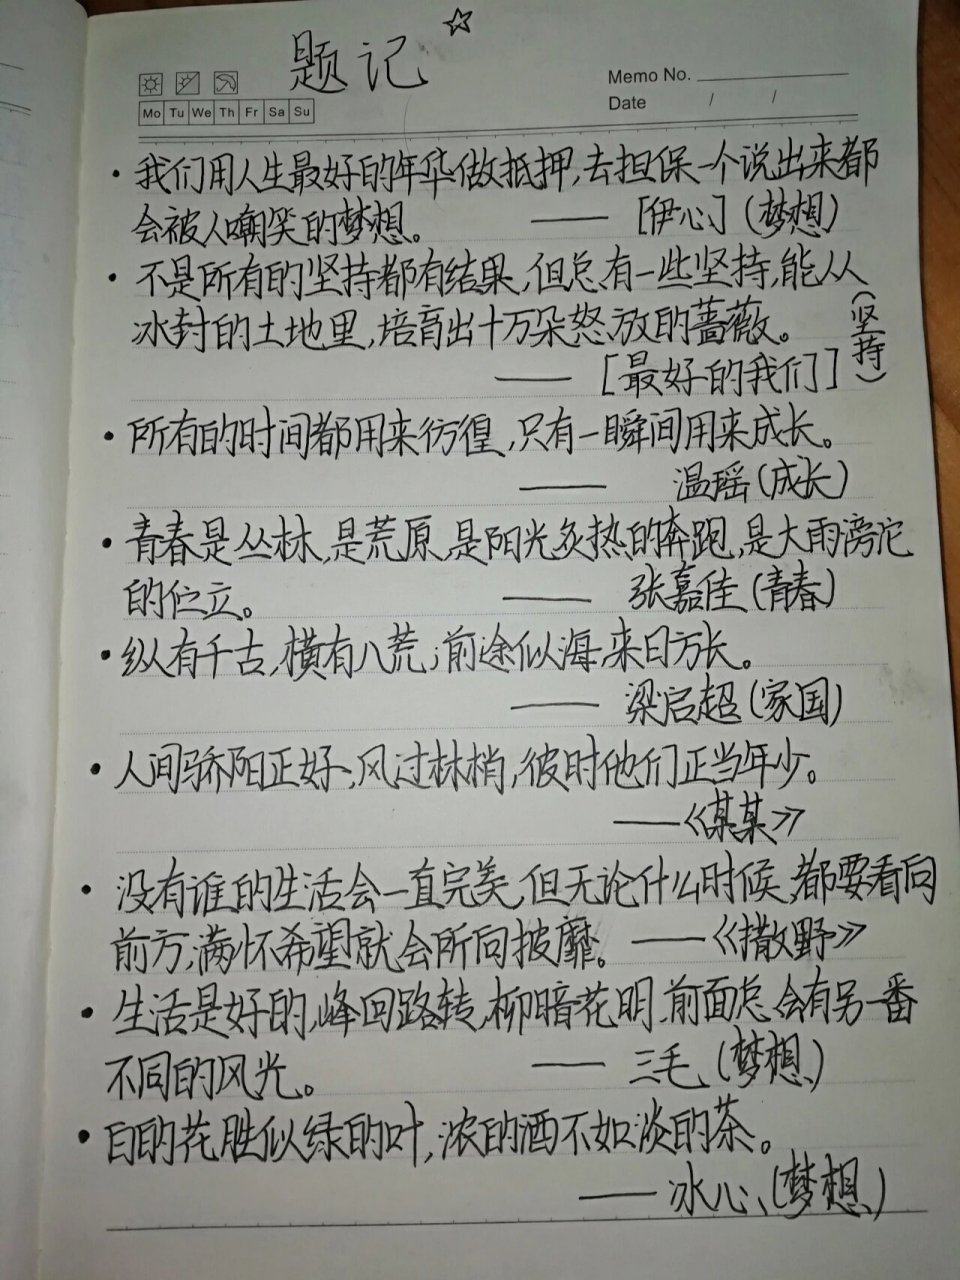 题记 ☆
Memo No.
Mo Tu We Th Fr Sa Su
Date / /
· 我们用人生最好的年华做抵押,去担保一个说出来都
会被人嘲笑的梦想。 —— [伊心](梦想)
· 不是所有的坚持都有结果,但总有一些坚持,能从
冰封的土地里,培育出十万朵怒放的蔷薇。
—— [最好的我们] (坚持)
· 所有的时间都用来彷徨,只有一瞬间用来成长。
—— 温瑶(成长)
· 青春是丛林,是荒原,是阳光炙热的奔跑,是大雨滂沱
的伫立。 —— 张嘉佳(青春)
· 纵有千古,横有八荒;前途似海,来日方长。
—— 梁启超(家国)
· 人间骄阳正好,风过林梢,彼时他们正当年少。
——《某某》
· 没有谁的生活会一直完美,但无论什么时候,都要看向
前方,满怀希望就会所向披靡。 ——《撒野》
· 生活是好的,峰回路转,柳暗花明,前面总会有另一番
不同的风光。 —— 三毛(梦想)
· 白的花胜似绿的叶,浓的酒不如淡的茶。
—— 冰心(梦想)